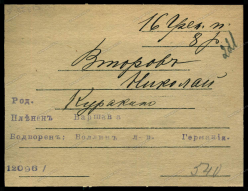 16 Грен. п.
8 р.
221
Второвъ
Николай
Род. Куракино
Плѣненъ Варшава
Водворенъ: Германія
12096/
540